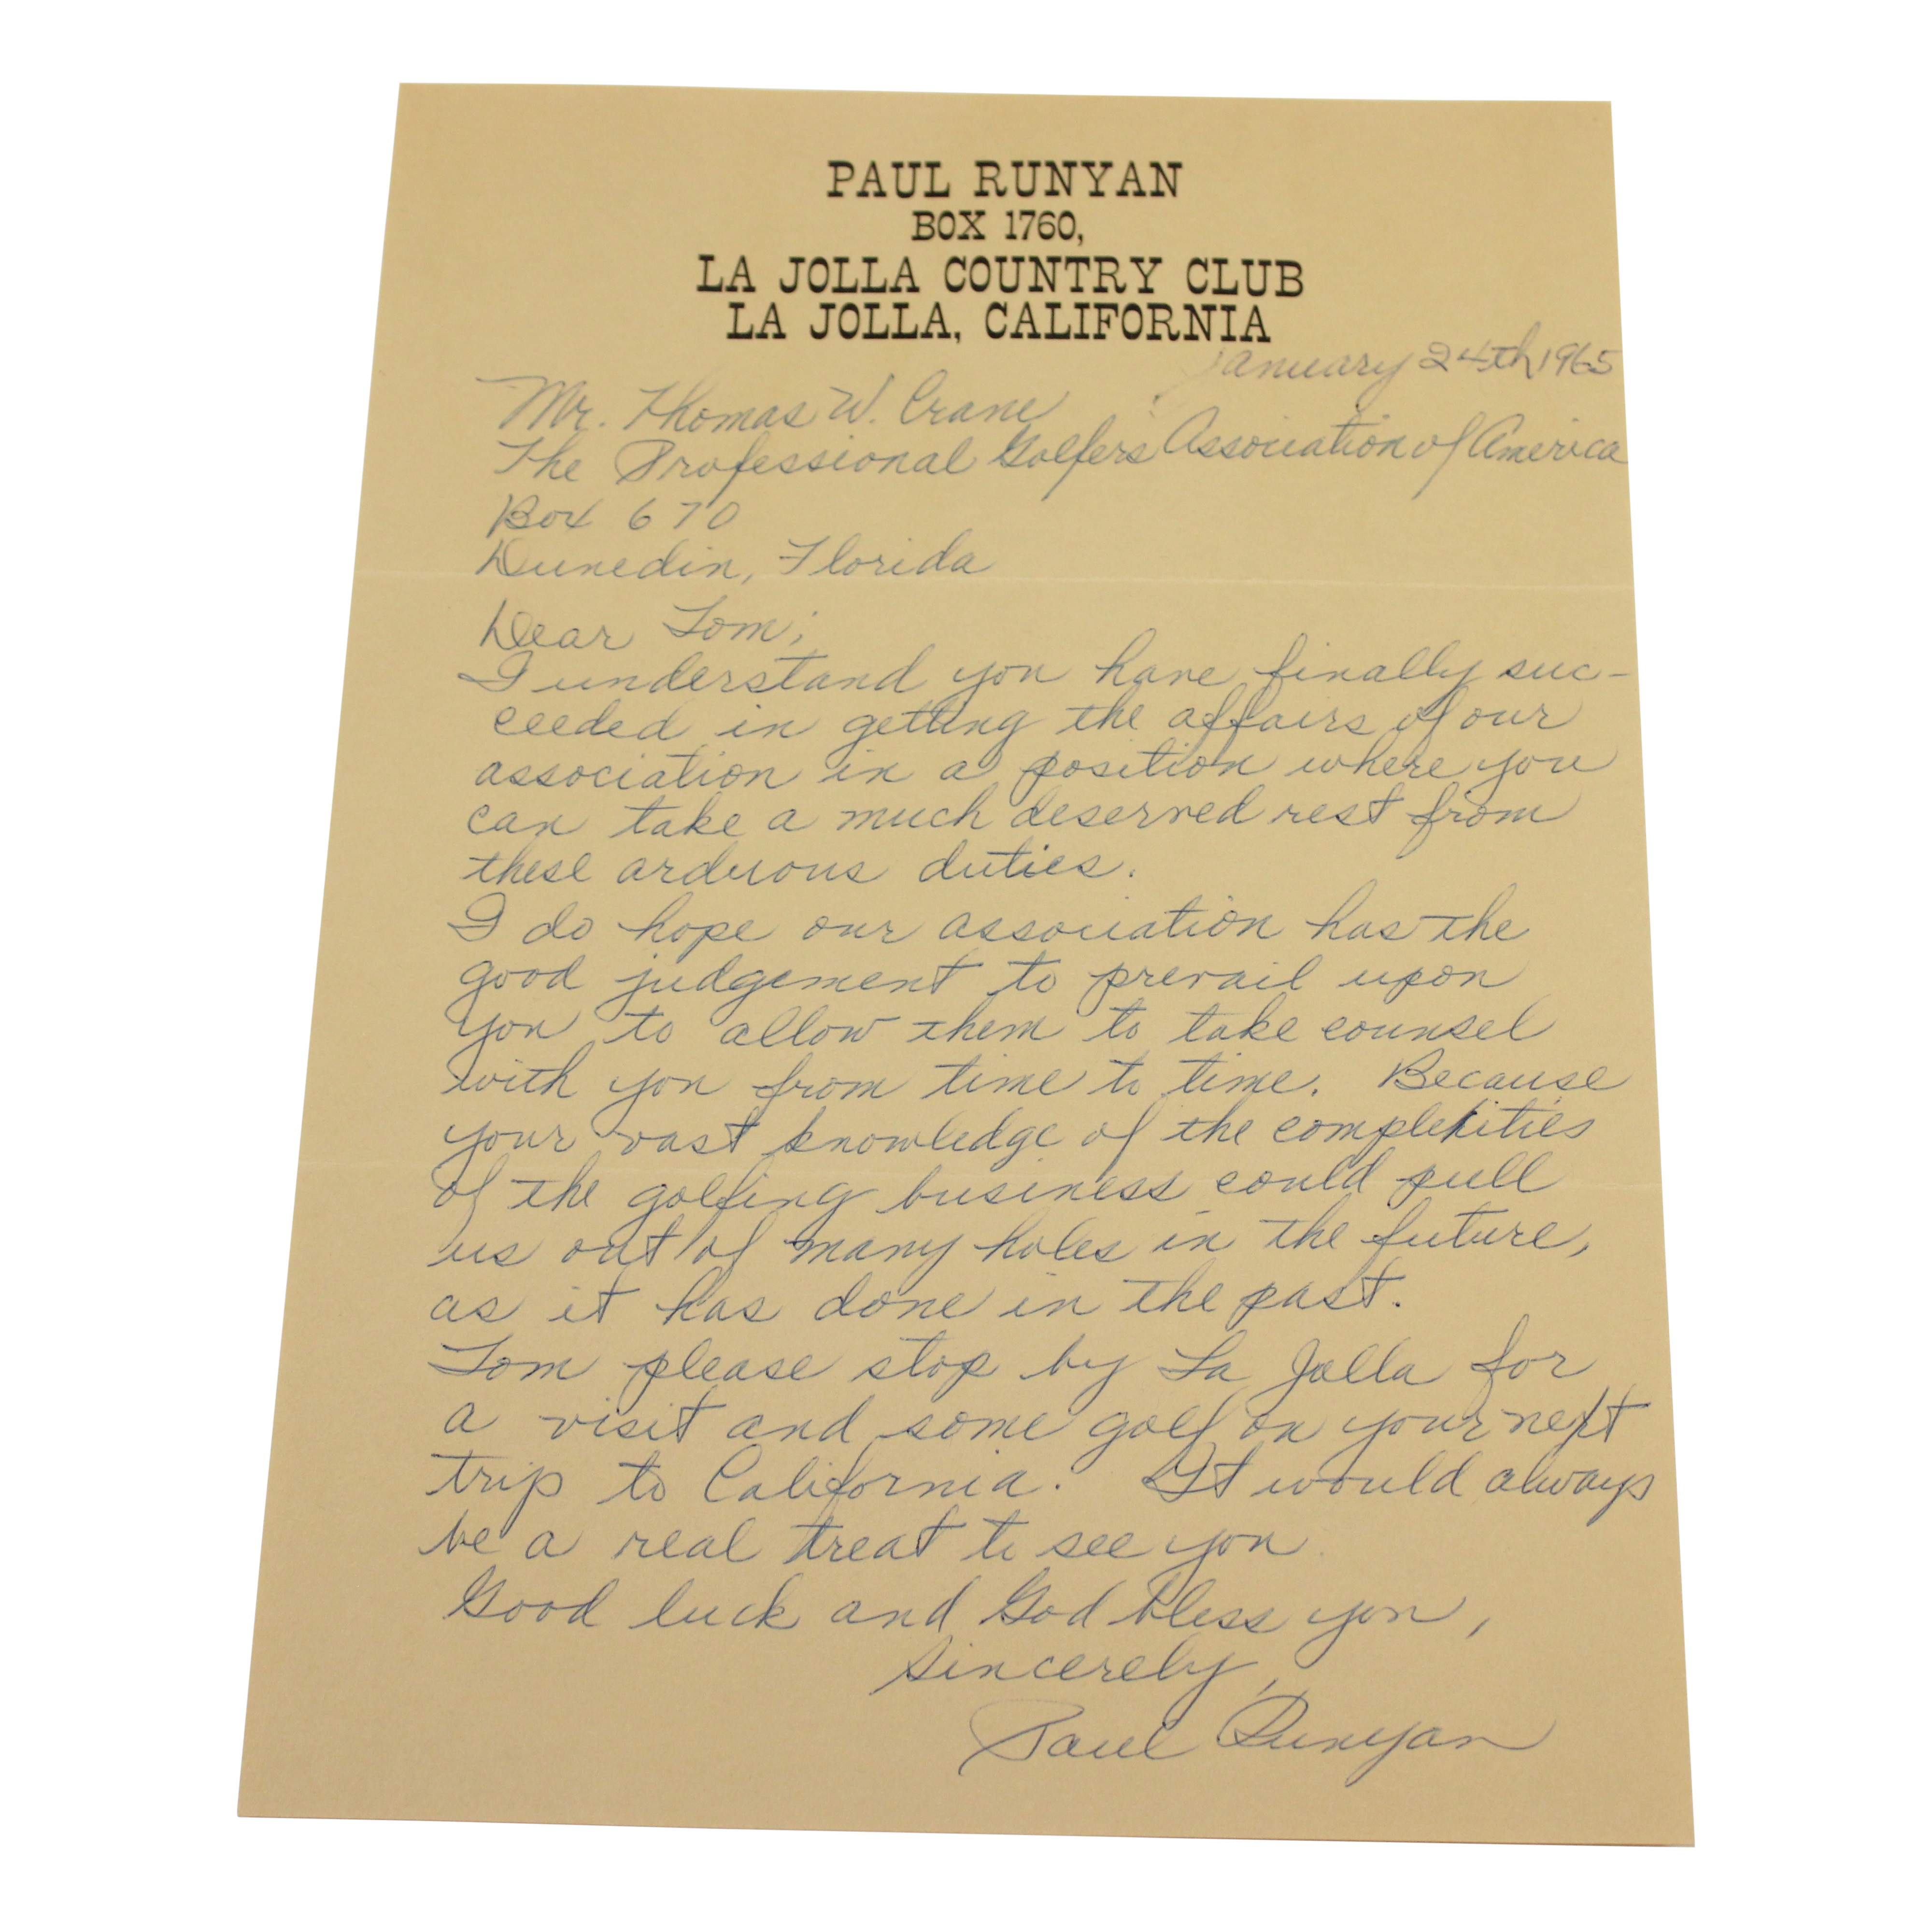 PAUL RUNYAN
BOX 1760,
LA JOLLA COUNTRY CLUB
LA JOLLA, CALIFORNIA
January 24th 1965
Mr. Thomas W. Crane
The Professional Golfers Association of America
Box 670
Dunedin, Florida
Dear Tom;
I understand you have finally suc-
ceeded in getting the affairs of our
association in a position where you
can take a much deserved rest from
these arduous duties.
I do hope our association has the
good judgement to prevail upon
you to allow them to take counsel
with you from time to time. Because
your vast knowledge of the complexities
of the golfing business could pull
us out of many holes in the future,
as it has done in the past.
Tom please stop by La Jolla for
a visit and some golf on your next
trip to California. It would always
be a real treat to see you.
Good luck and God bless you,
Sincerely,
Paul Runyan